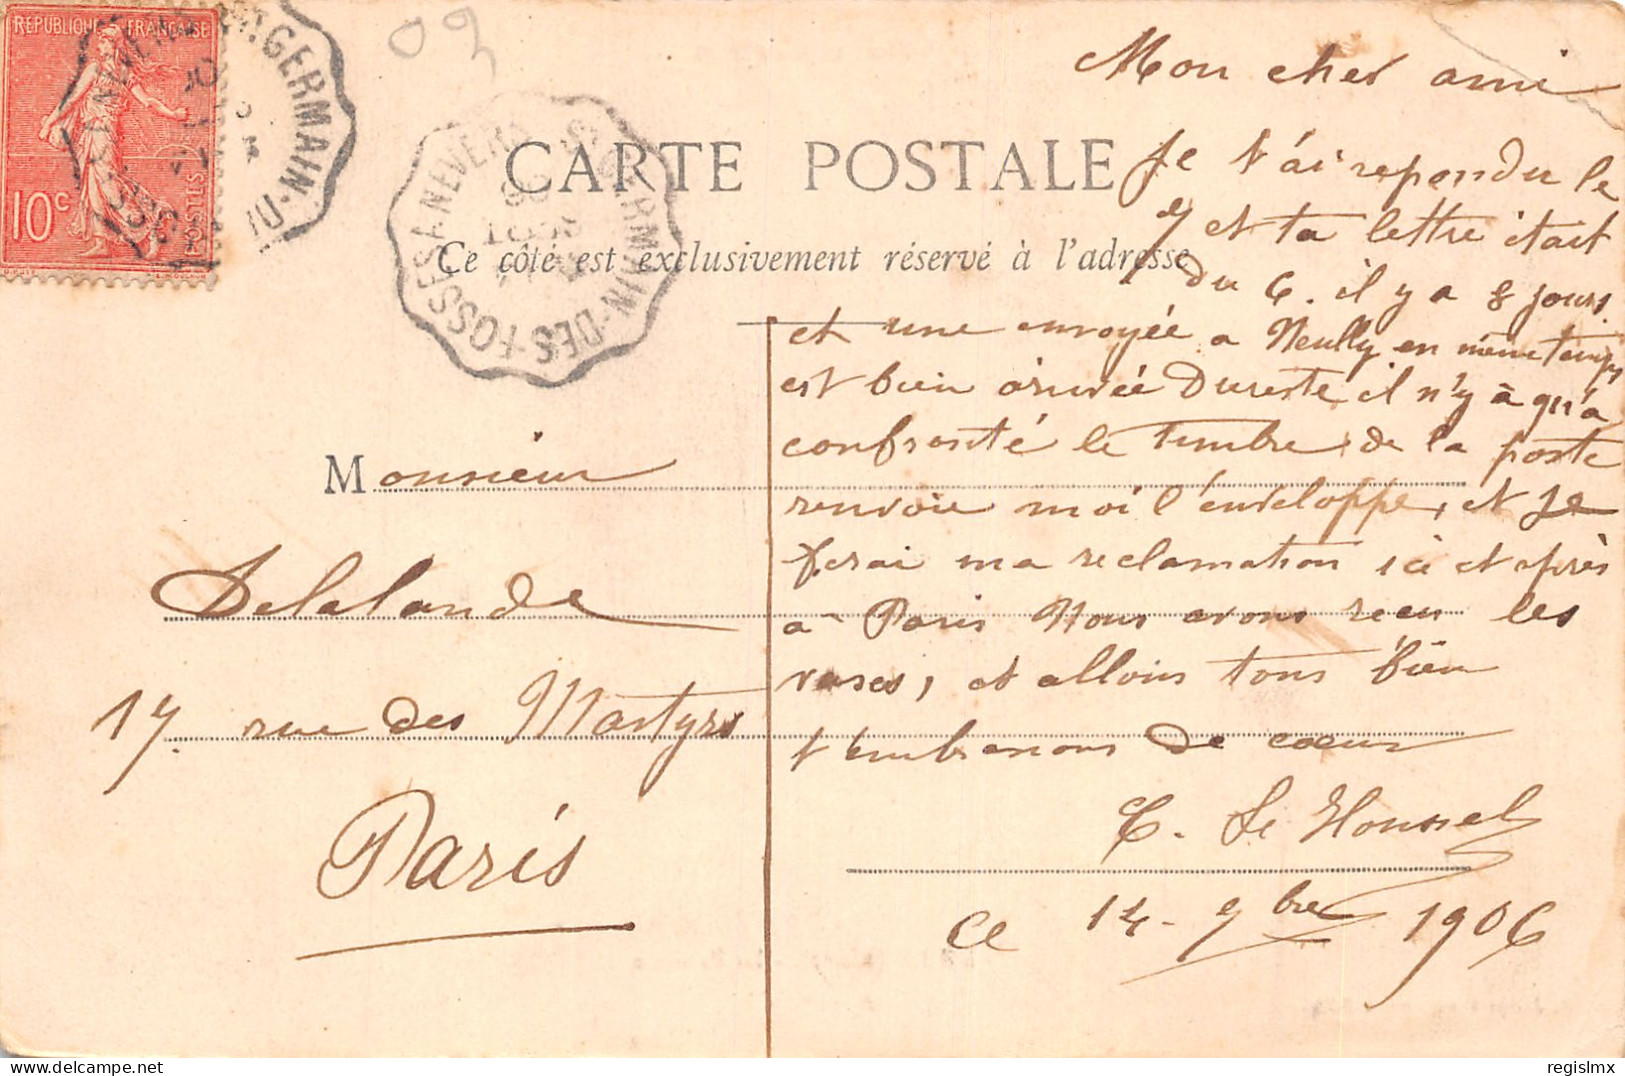 RÉPUBLIQUE FRANÇAISE
10c
POSTES
ST GERMAIN-DES-FOSSES A NEVERS
09
CARTE POSTALE
Ce côté est exclusivement réservé à l'adresse
Monsieur
Delalande
17. rue des Martyrs
Paris
Mon cher ami
Je t'ai repondu le
9 et ta lettre était
du 6. il y a 8 jours.
et une envoyée a Neully en même temps
est bien arrivée Dureste il n'y à qu'a
confronté le timbre de la poste
renvoie moi l'enveloppe, et Je
ferai ma reclamation ici et après
a Paris Nous avons recu les
vases, et allons tous bien
t'embrassons de coeur
E. Le Houssel
ce 14 - 9bre 1906
regislmx